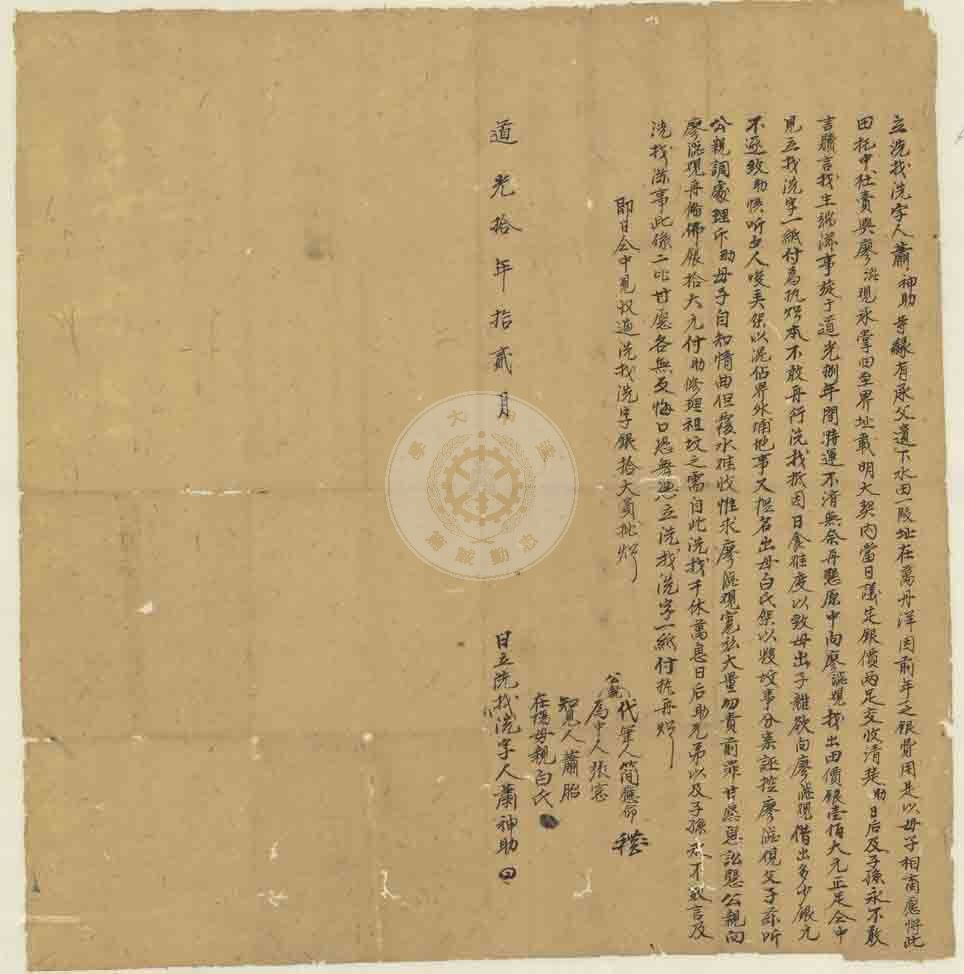 立洗找洗字人蕭神助等緣有承父遺下水田一段址在萬丹洋因前年乏銀費用是以母子相商愿將此
田托中杜賣與廖滋現永掌四至界址載明大契內當日議定銀價兩足交收清楚助日后及子孫永不敢
言贖言找生端滋事旋于道光捌年間時運不濟無奈再懇原中向廖滋現找出田價銀壹佰大元正足仝中
見立找洗字一紙付為執炤本不敢再行洗找祇因日食難度以致母出子離欲向廖滋現借出多少銀元
不遂致助悞听出人唆弄架以混佔界外埔地事又揑名出母白氏架以毀坟事分案誣控廖滋現父子茲听
公親調處理斥助母子自知情曲但覆水难收惟求廖滋現寬弘大量勿責前非甘愿息訟懇公親向
廖滋現再備佛銀拾大元付助修理祖坟之需自此洗找千休萬息日后助兄弟以及子孫永不敢言及
洗找滋事此係二比甘愿各無反悔口恐無憑立洗找洗字一紙付执再炤
即日仝中見收過洗找洗字銀拾大員批炤
公親
代筆人簡應命
為中人張憲
知見人蕭胎
在塲母親白氏
道光拾年拾貳月
日立洗找洗字人蕭神助